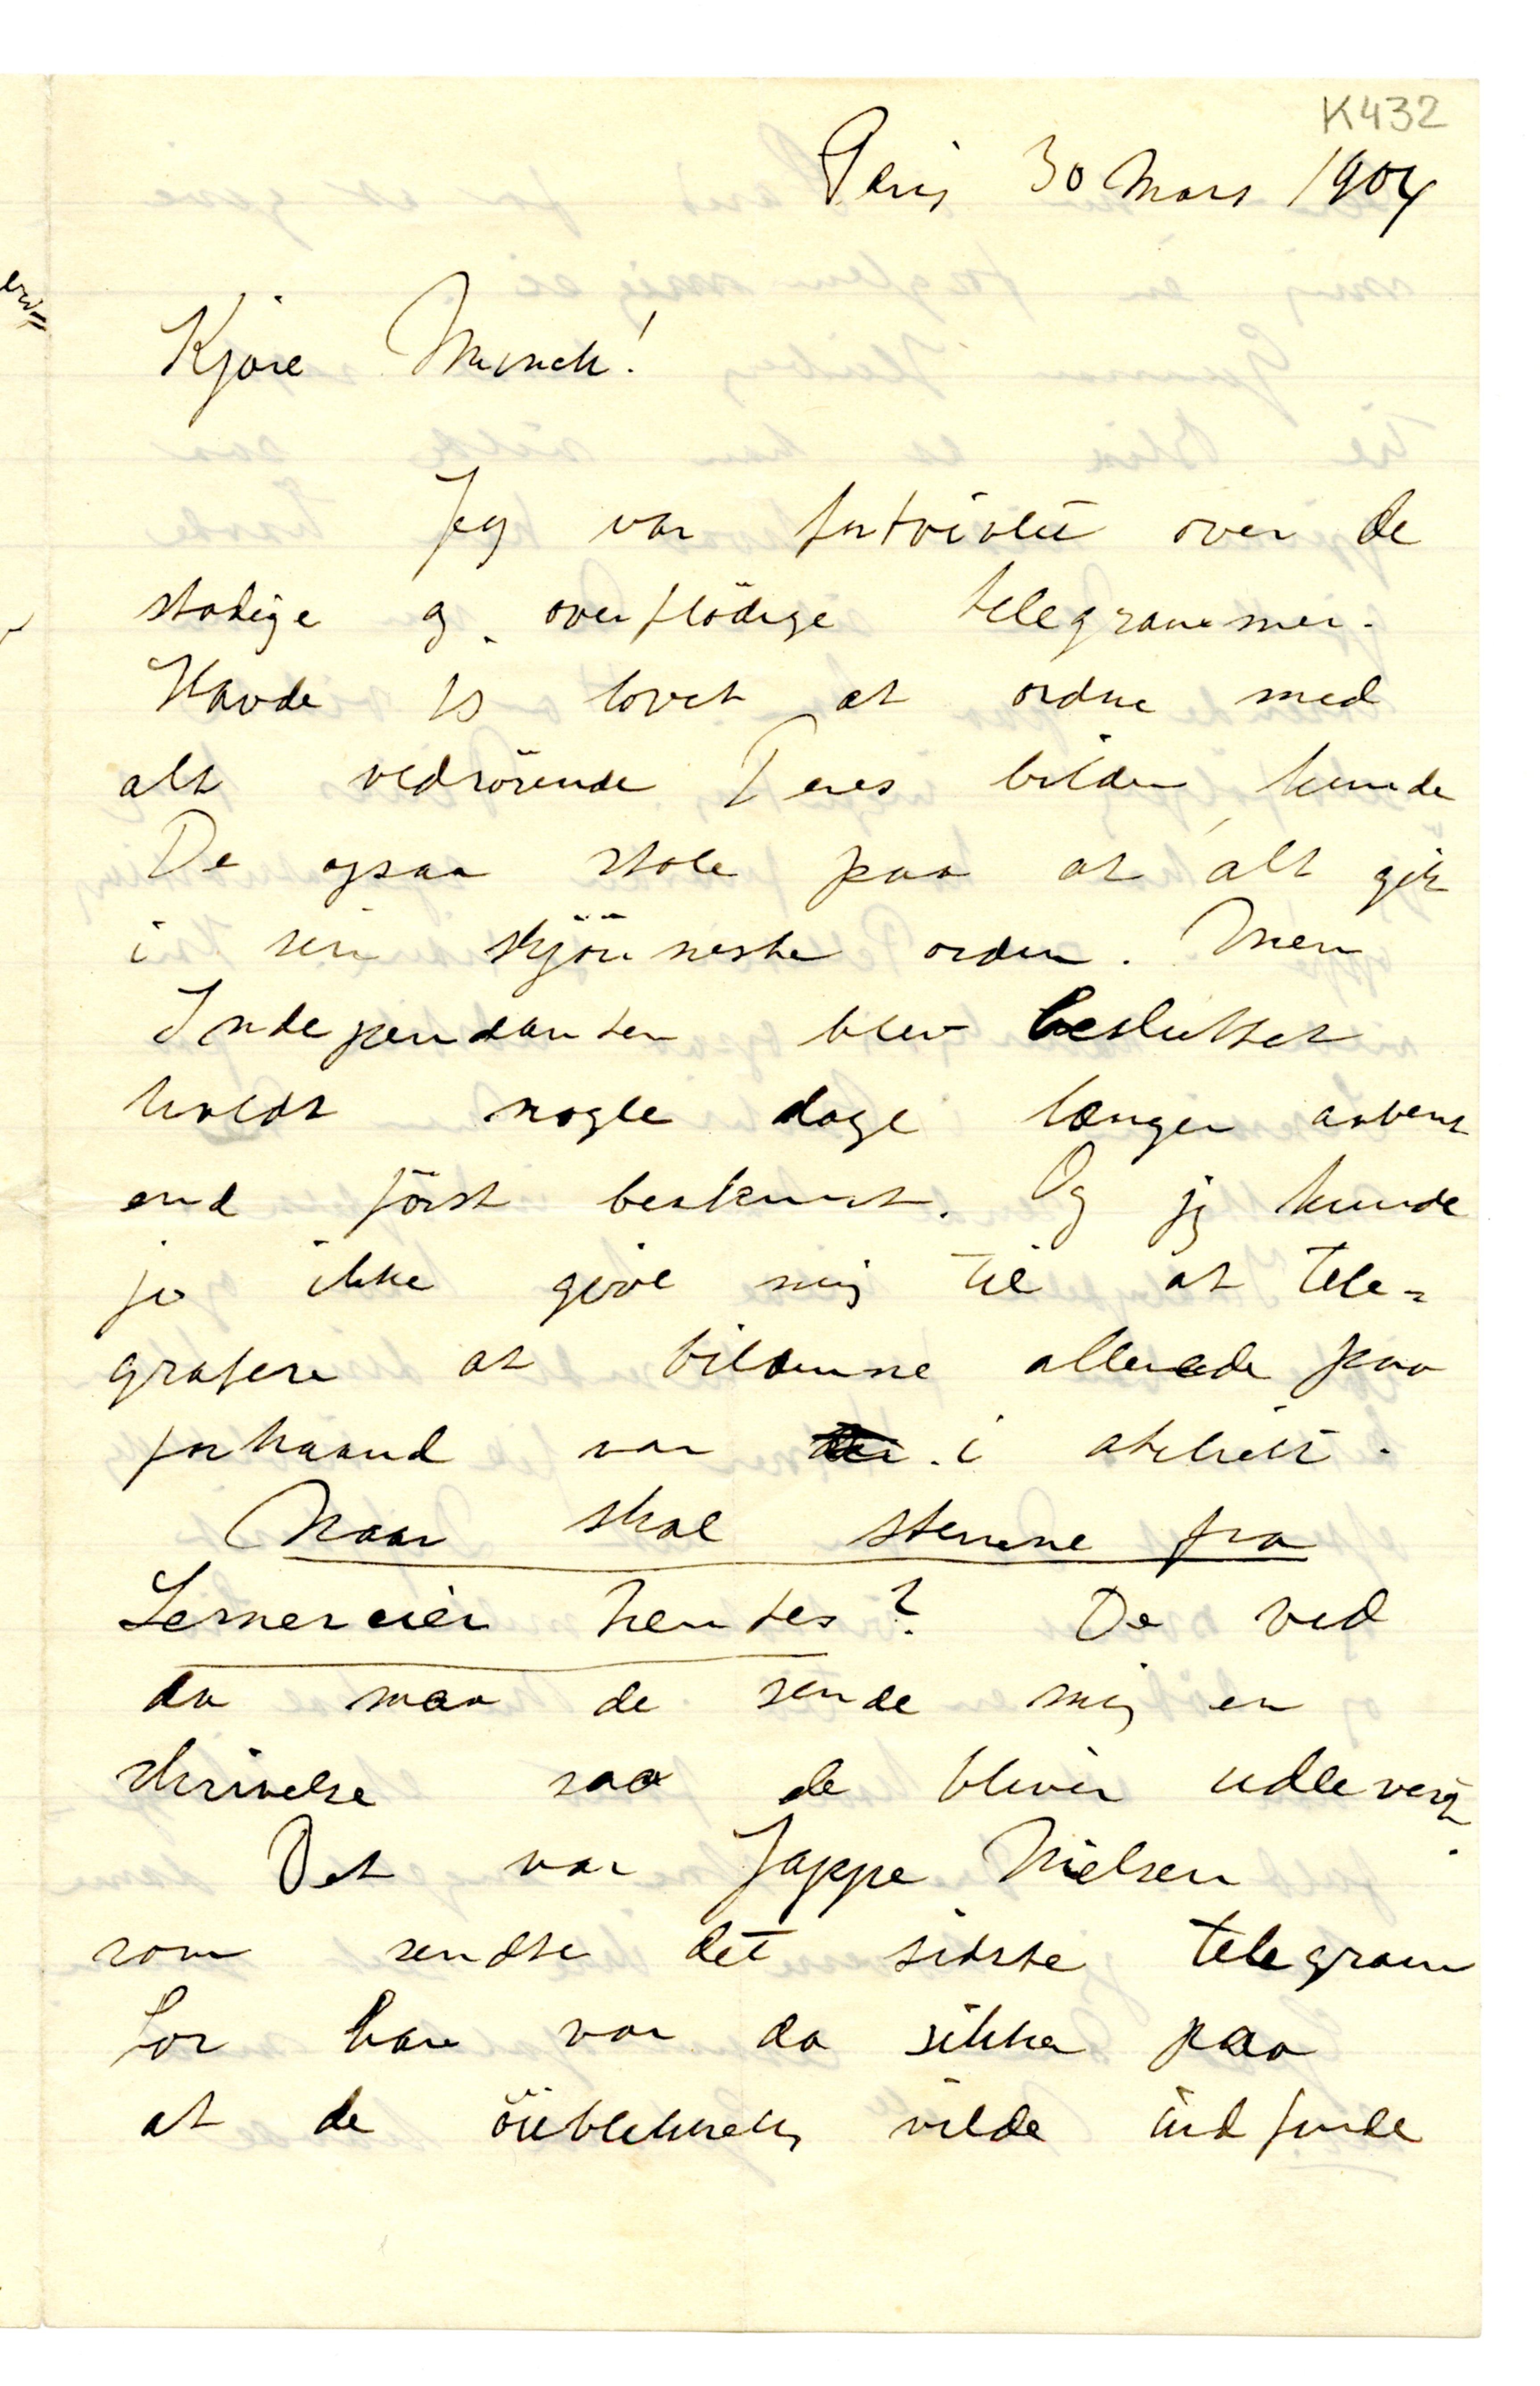 K432
Paris 30 Mars 1904
Kjære Munch!
Jeg var fortvivlet över de
stadige og overflödige telegrammer.
Havde jeg lovet at ordne med
alt vedrörende Deres bilder kunde
De ogsaa stole paa at alt gik
i sin skjönneste orden. Men
Independanten blev besluttet
holdt nogle dage længer aabent
end först bestemt. Og jeg kunde
jo ikke give mig til at tele=
grafere at bilderne allerede paa
forhaand var i atelieet.
Naar skal stenene fra
Lemercier hentes? De ved
da maa de sende mig en
skrivelse saa de bliver udleveret.
Det var Jappe Nielsen
som sendte det sidste telegram
for han var da sikker paa
at de öieblikkelig vilde indfinde